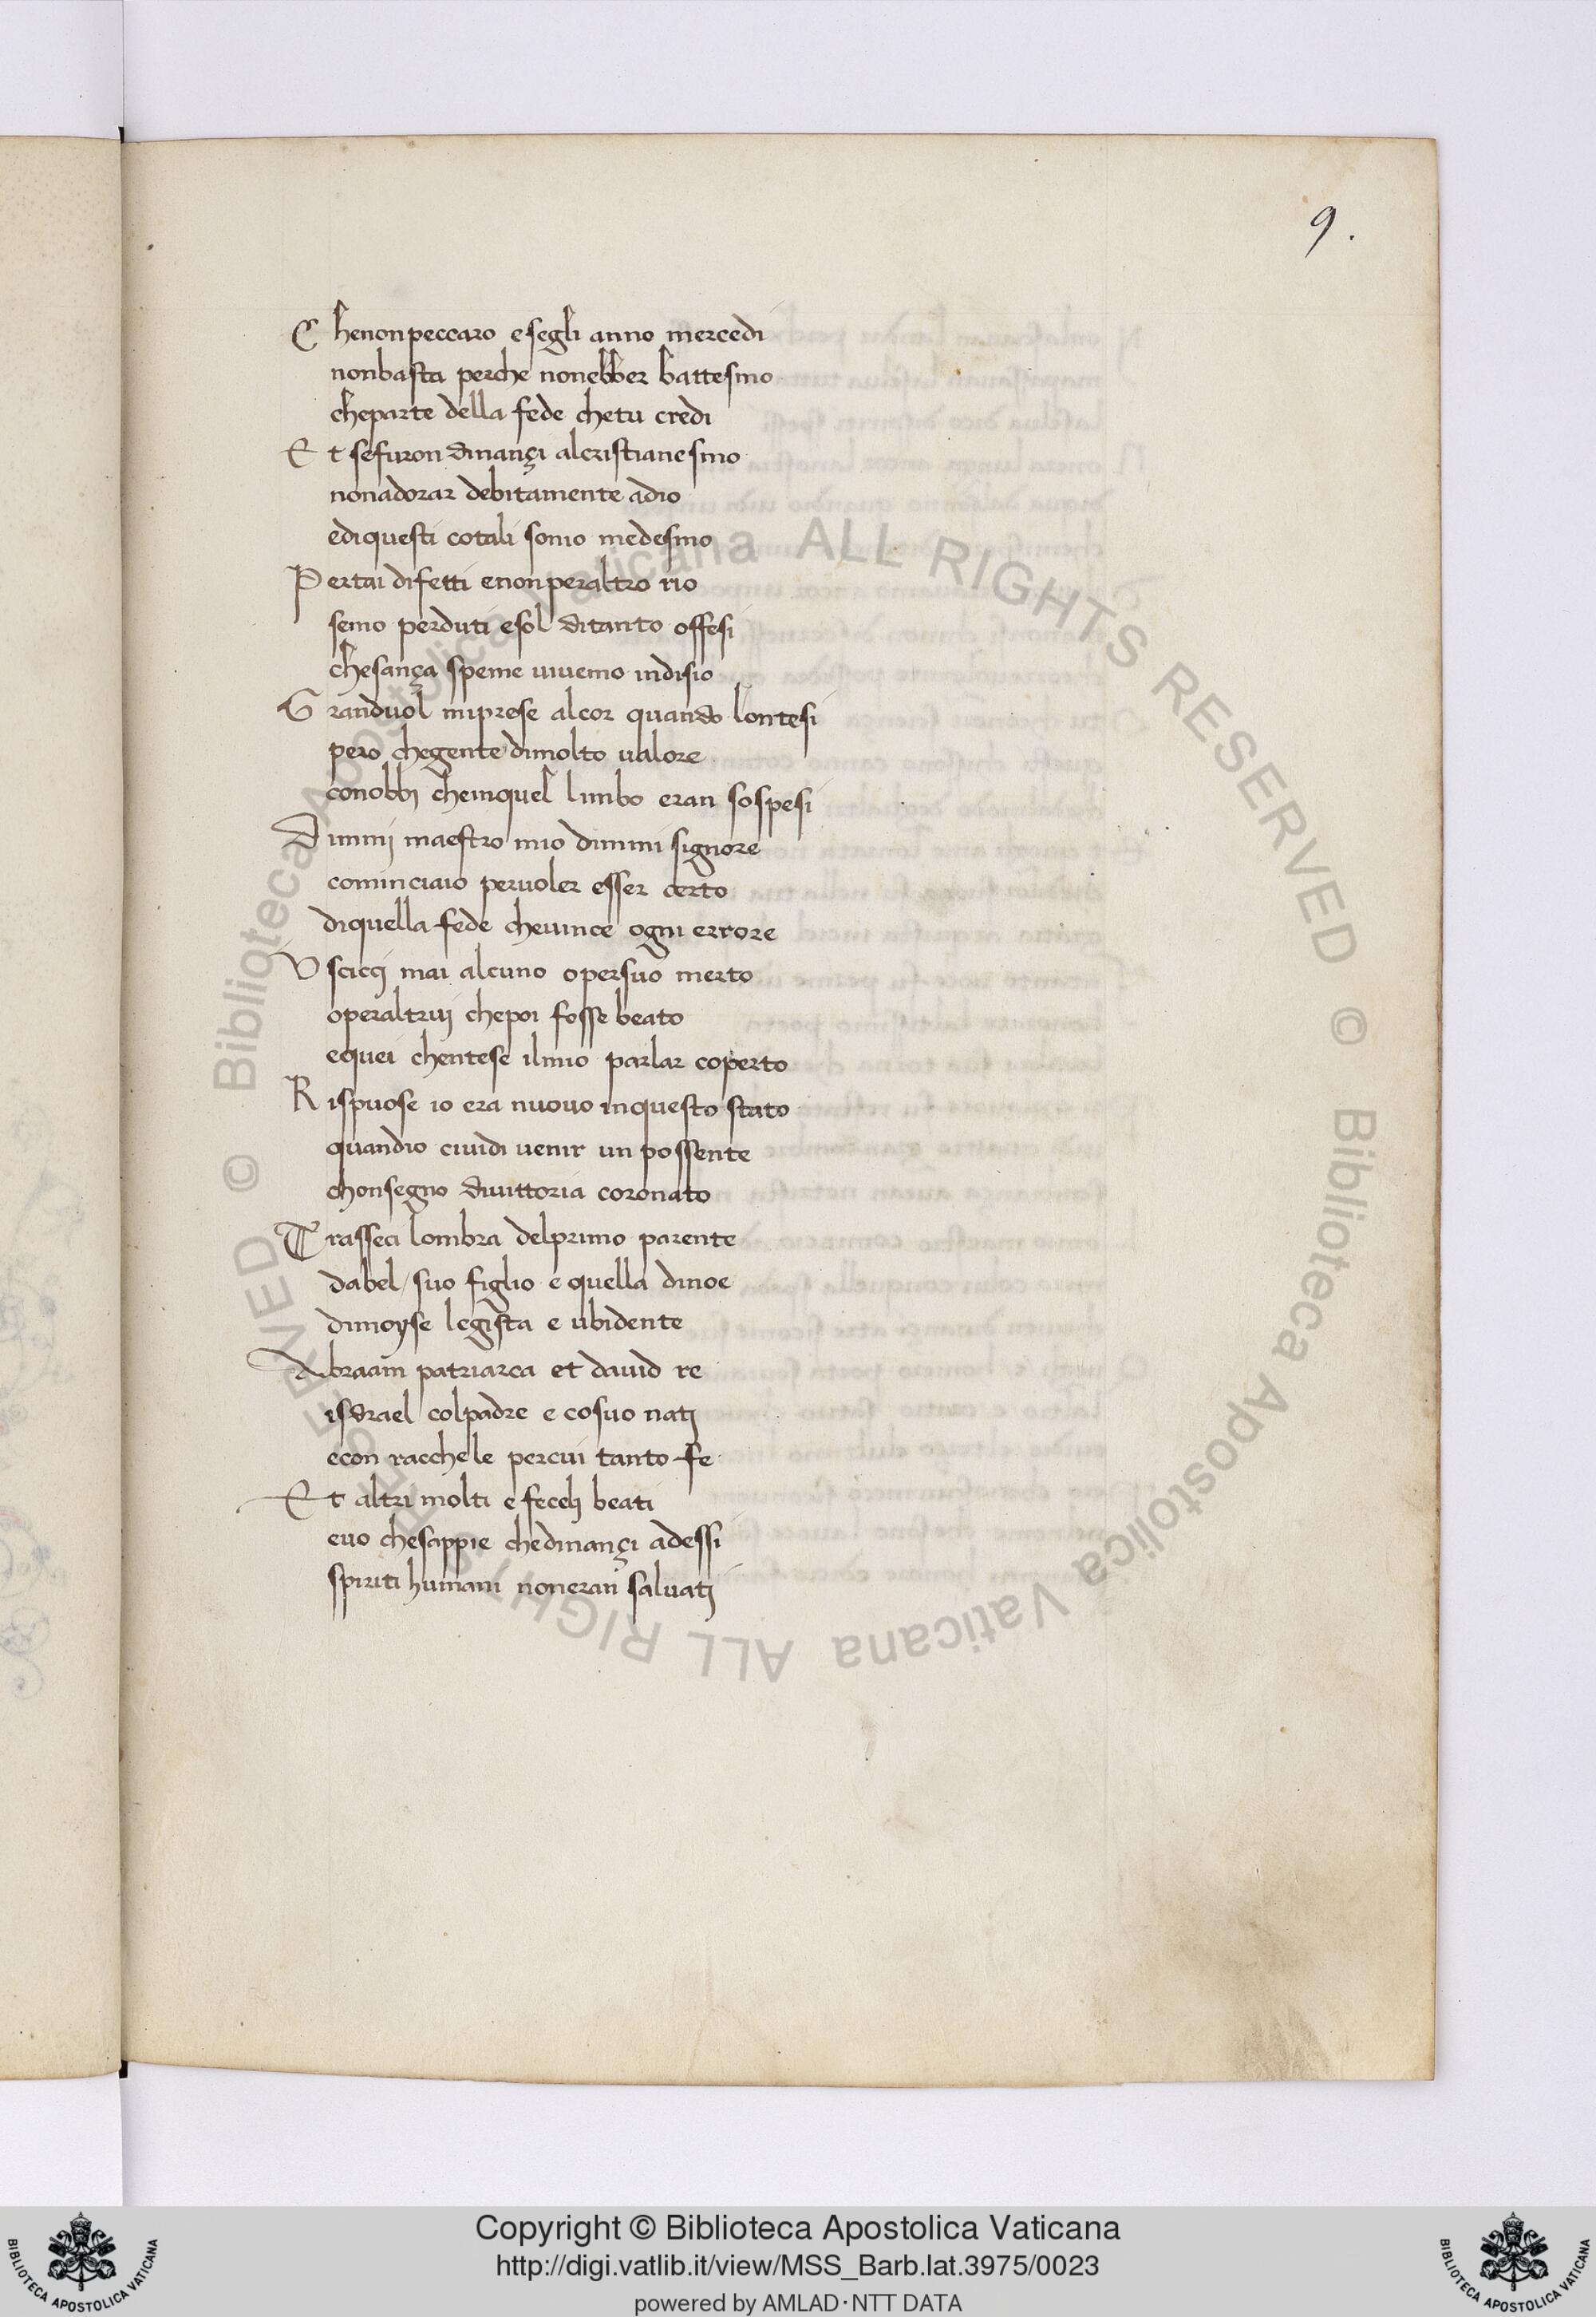 9.
C henonpeccaro esegli anno mercedi
nonbasta perche nonebber battesmo
cheparte della fede chetu credi
E t sefuron dinançi alcristianesmo
nonadorar debitamente adio
ediquesti cotali sonio medesmo
P ertai difetti enonperaltro rio
semo perduti esol ditanto offesi
chesança speme uiuemo indisio
G randuol miprese alcor quando lontesi
pero chegente dimolto ualore
conobbi cheinquel limbo eran sospesi
D immij maestro mio dimmi signore
cominciaio peruoler esser certo
diquella fede cheuince ogni errore
V scicci mai alcuno opersuo merto
operaltruij chepoi fosse beato
equei chentese ilmio parlar coperto
R ispuose io era nuouo inquesto stato
quandio ciuidi uenir un possente
chonsegno diuittoria coronato
T rasseci lombra delprimo parente
dabel / suo figlio e quella dinoe
dimoyse legista e ubidente
A braam patriarca et dauid re
isdrael colpadre e cosuo natj
econ racchele percui tanto fe
E t altri molti e fecelj beati
euo chesappie chedinançi adessi
spiriti humani noneran saluatj
© Biblioteca Apostolica Vaticana ALL RIGHTS RESERVED © Biblioteca Apostolica Vaticana ALL RIGHTS RESERVED
Copyright © Biblioteca Apostolica Vaticana
http://digi.vatlib.it/view/MSS_Barb.lat.3975/0023
powered by AMLAD·NTT DATA
BIBLIOTECA APOSTOLICA VATICANA
BIBLIOTECA APOSTOLICA VATICANA